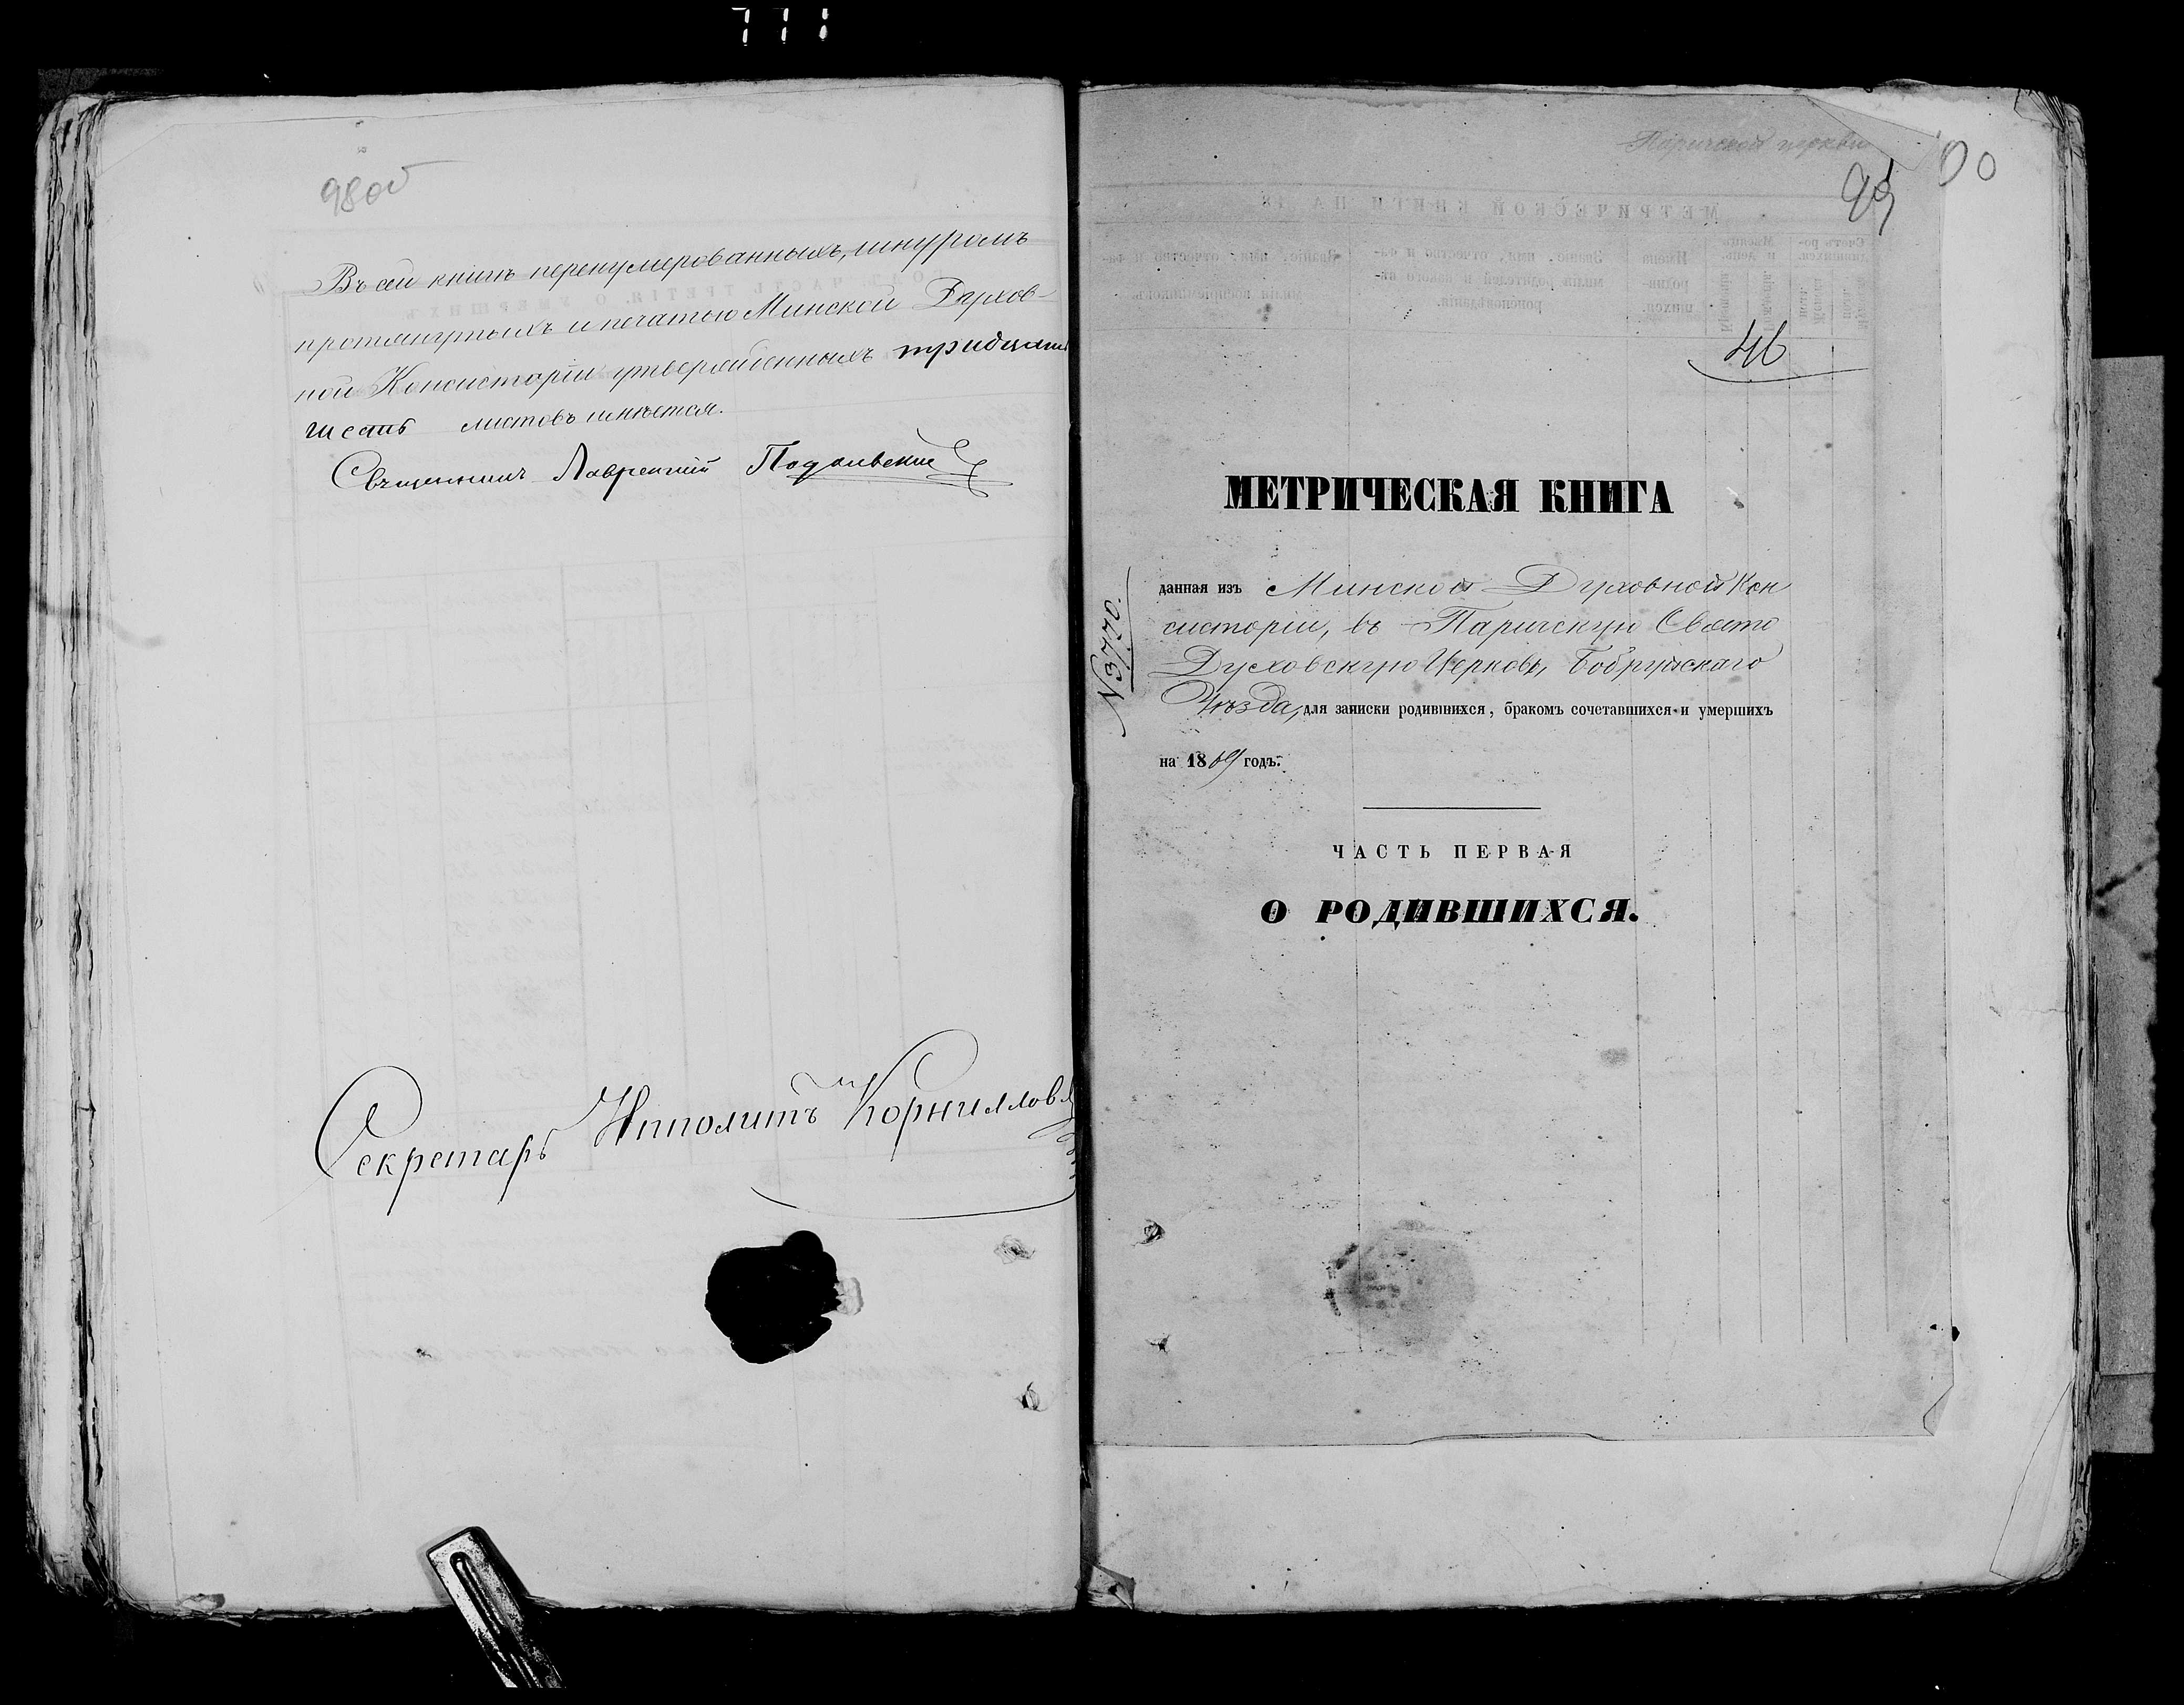 98об
Въ сей книгѣ перенумерованныхъ, шнуромъ
протянутыхъ и печатью Минской Духов-
ной Консисторіи утвержденныхъ тридцать
шесть листовъ имѣется.
Священникъ Лаврентій
Секретарь Ипполитъ Корниловъ
Паричской церкви
99
00
МЕТРИЧЕСКОЙ КНИГИ НА 18
46
МЕТРИЧЕСКАЯ КНИГА
№3770.
данная изъ Минской Духовной Кон
систоріи, въ Паричскую Свято
Духовскую Церковь, Бобруйскаго
Уѣзда, для записки родившихся, бракомъ сочетавшихся и умершихъ
на 1869 годъ.
ЧАСТЬ ПЕРВАЯ
О РОДИВШИХСЯ.